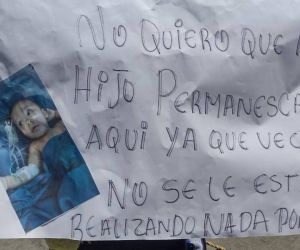 NO QUIERO QUE M
HIJO PERMANESC
AQUI YA QUE VEO
NO SE LE EST
REALIZANDO NADA PO